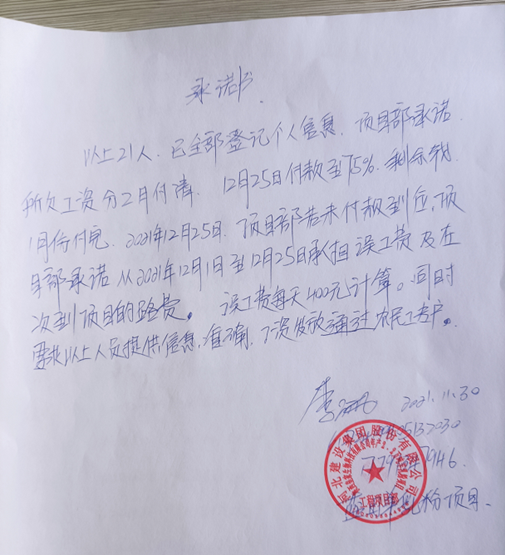 承诺书
以上21人,已全部登记个人信息,项目部承诺
所欠工资分2月付清 12月25日付款到75%.剩余款
1月份付完.2021年12月25日.项目部若未付款到位,项
目部承诺从2021年12月1日至12月25日承担误工费及在
次到项目的路费。误工费每天400元计算。同时
要求以上人员提供信息,准确,工资发放通过农民工专户.
2021.11.30
河北建设集团股份有限公司
项目.